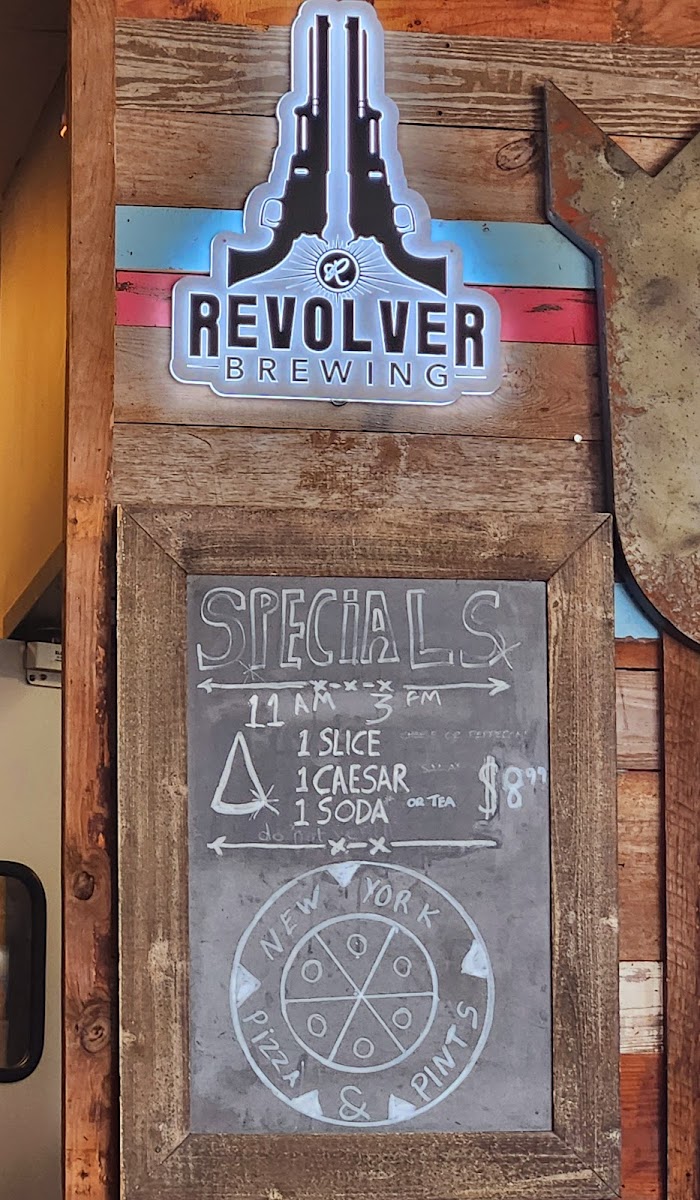 R
REVOLVER
BREWING
SPECIALS
11 AM 3 PM
1 SLICE CHEESE OR PEPPERONI
1 CAESAR SALAD
1 SODA OR TEA
$8.99
do not
NEW YORK
PIZZA & PINTS